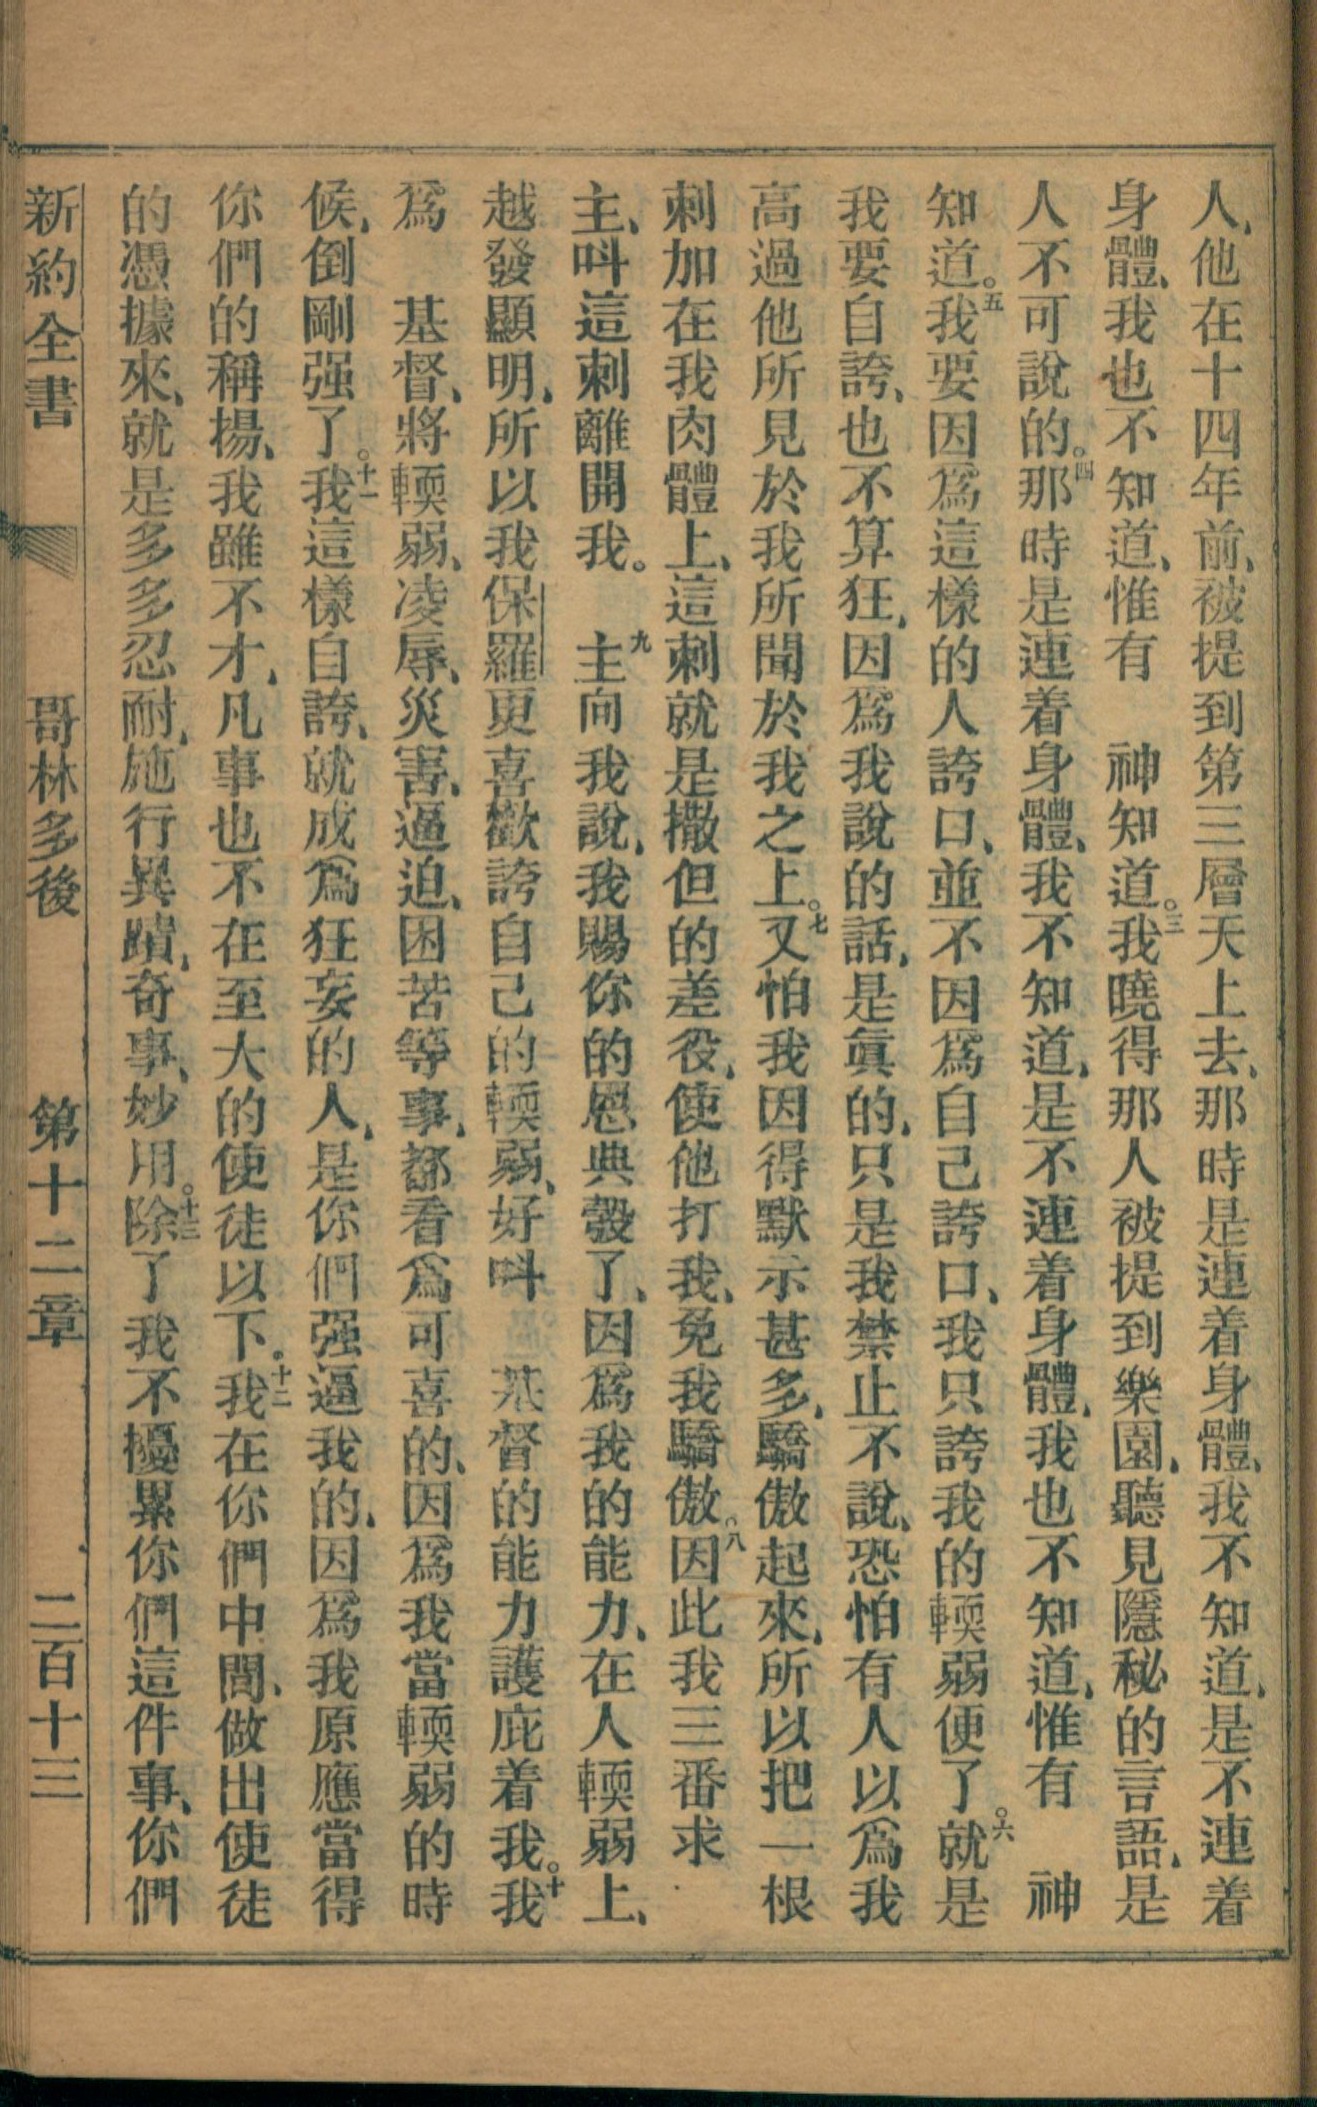 人、他在十四年前、被提到第三層天上去、那時是連着身體、我不知道、是不連着
身體、我也不知道、惟有　神知道。三我曉得那人被提到樂園、聽見隱秘的言語、是
人不可說的。四那時是連着身體、我不知道、是不連着身體、我也不知道、惟有　神
知道。五我要因爲這樣的人誇口、並不因爲自己誇口、我只誇我的輭弱便了。六就是
我要自誇、也不算狂、因爲我說的話、是眞的、只是我禁止不說、恐怕有人以爲我
高過他所見於我所聞於我之上。七又怕我因得默示甚多、驕傲起來、所以把一根
刺加在我肉體上、這刺就是撒但的差役、使他打我、免我驕傲。八因此我三番求
主、呌這刺離開我。　九主向我說、我賜你的恩典彀了、因爲我的能力、在人輭弱上、
越發顯明、所以我保羅更喜歡誇自己的輭弱、好呌　基督的能力護庇着我。十我
爲　基督、將輭弱、凌辱、災害、逼迫、困苦等事、都看爲可喜的、因爲我當輭弱的時
候、倒剛强了。十一我這樣自誇、就成爲狂妄的人、是你們强逼我的、因爲我原應當得
你們的稱揚、我雖不才、凡事也不在至大的使徒以下。十二我在你們中間、做出使徒
的憑據來、就是多多忍耐、施行異蹟、奇事、妙用。十三除了我不擾累你們這件事、你們
新約全書　哥林多後　第十二章　二百十三